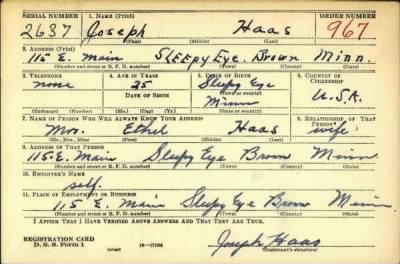 SERIAL NUMBER 1. NAME (Print) ORDER NUMBER
2637 Joseph Haas 967
(First) (Middle) (Last)
2. ADDRESS (Print)
115 E. Main Sleepy Eye. Brown Minn.
(Number and street or R. F. D. number) (Town) (County) (State)
3. TELEPHONE 4. AGE IN YEARS 5. PLACE OF BIRTH 6. COUNTRY OF CITIZENSHIP
none 25 Sleepy Eye
DATE OF BIRTH (Town or county)
Minn U.S.A.
(Exchange) (Number) (Mo.) (Day) (Yr.) (State or country)
7. NAME OF PERSON WHO WILL ALWAYS KNOW YOUR ADDRESS 8. RELATIONSHIP OF THAT PERSON
Mrs. Ethel Haas wife
(Mr., Mrs., Miss) (First) (Middle) (Last)
9. ADDRESS OF THAT PERSON
115 E. Main Sleepy Eye Brown Minn
(Number and street or R. F. D. number) (Town) (County) (State)
10. EMPLOYER'S NAME
self.
11. PLACE OF EMPLOYMENT OR BUSINESS
115 E. Main Sleepy Eye Brown Minn
(Number and street or R. F. D. number) (Town) (County) (State)
I AFFIRM THAT I HAVE VERIFIED ABOVE ANSWERS AND THAT THEY ARE TRUE.
REGISTRATION CARD
D. S. S. FORM 1 (over) Joseph Haas
(Registrant's signature)